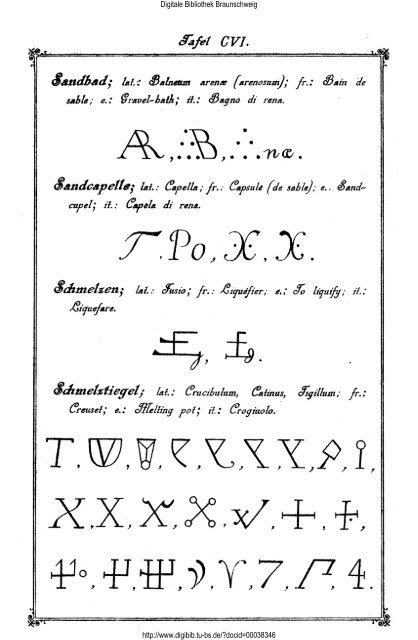 Digitale Bibliothek Braunschweig
Tafel CVI.
Sandbad; lat.: Balneum arenæ (arenosum); fr.: Bain de
sable; e.: Gravel-bath; it.: Bagno di rena.
Sandcapelle; lat.: Capella; fr.: Capsule (de sable); e.: Sand-
cupel; it.: Capela di rena.
Schmelzen; lat.: Fusio; fr.: Liquéfier; e.: To liquify; it.:
Liquefare.
Schmelztiegel; lat.: Crucibulum, Catinus, Tigillum; fr.:
Creuset; e.: Melting pot; it.: Croginolo.
http://www.digibib.tu-bs.de/?docid=00038346